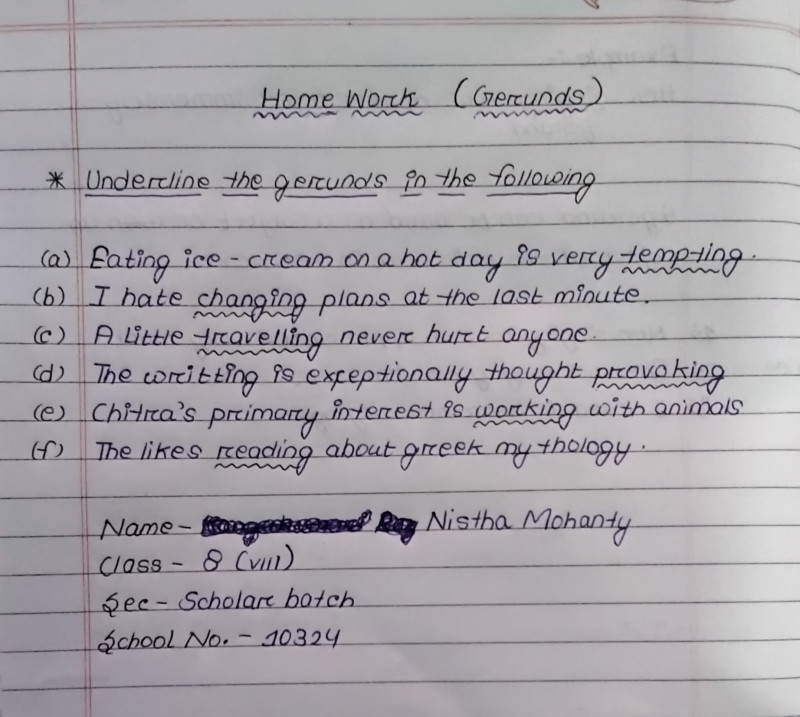 Home Work (Gerunds)
* Underline the gerunds in the following
(a) Eating ice-cream on a hot day is very tempting.
(b) I hate changing plans at the last minute.
(c) A little travelling never hurt anyone.
(d) The writting is exceptionally thought provoking
(e) Chitra's primary interest is working with animals
(f) The likes reading about greek mythology.
Name - Nistha Mohanty
Class - 8 (VIII)
Sec - Scholar batch
School No. - 10324